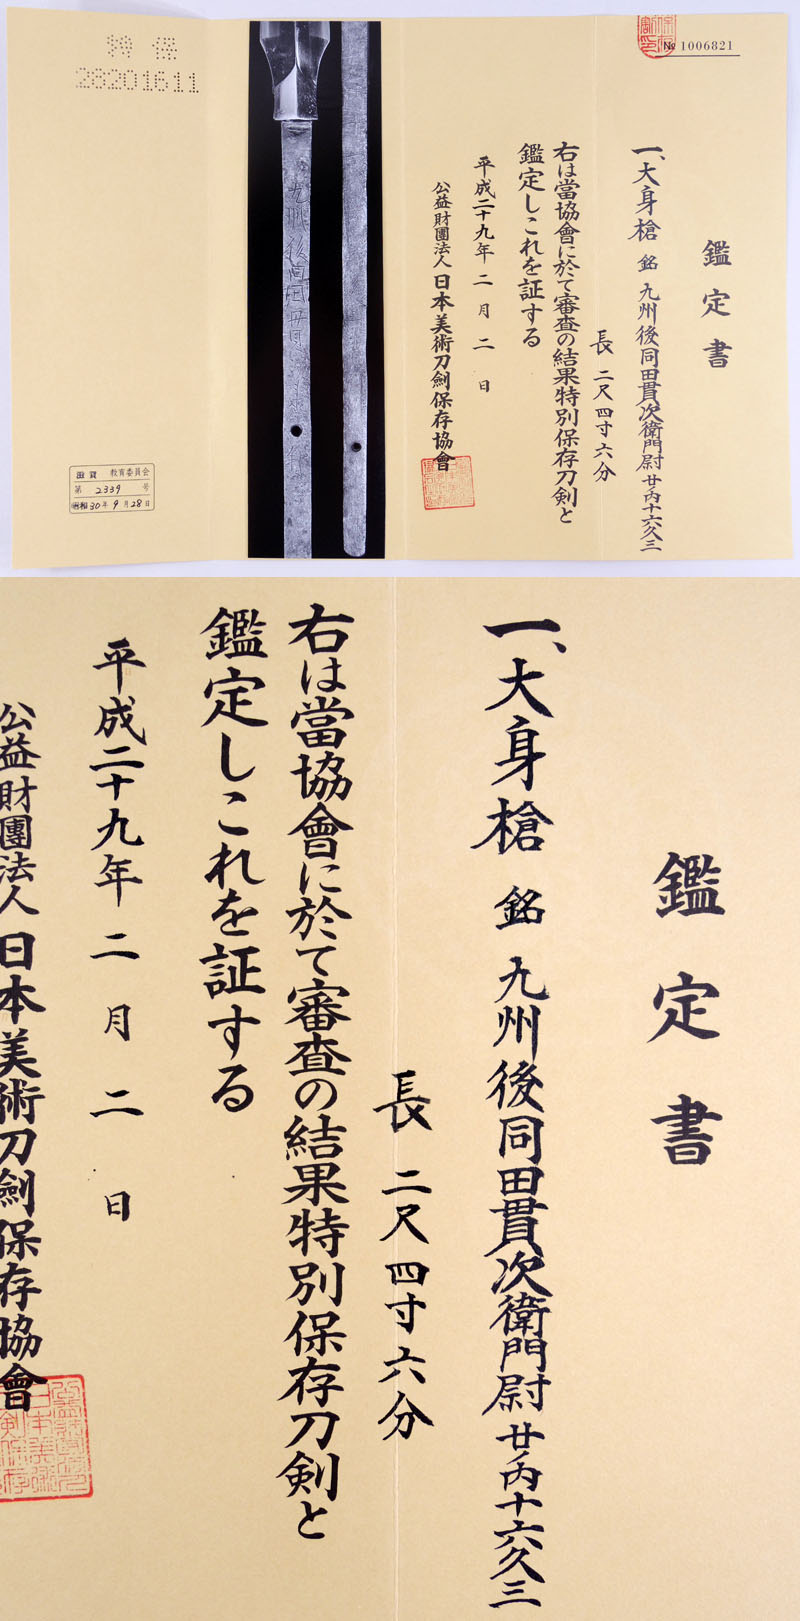 № 1006821
鑑定書
一、大身槍 銘 九州後同田貫次衛門尉 廿ノ内十六久三
長 二尺四寸六分
右は當協會に於て審査の結果特別保存刀剣と
鑑定しこれを証する
平成二十九年 二 月 二 日
公益財團法人 日本美術刀劍保存協會
特 保
28201611
滋賀 教育委員会
第 2339 号
昭和30年9月28日
鑑定書
一、大身槍 銘 九州後同田貫次衛門尉 廿ノ内十六久三
長 二尺四寸六分
右は當協會に於て審査の結果特別保存刀剣と
鑑定しこれを証する
平成二十九年 二 月 二 日
公益財團法人 日本美術刀劍保存協會